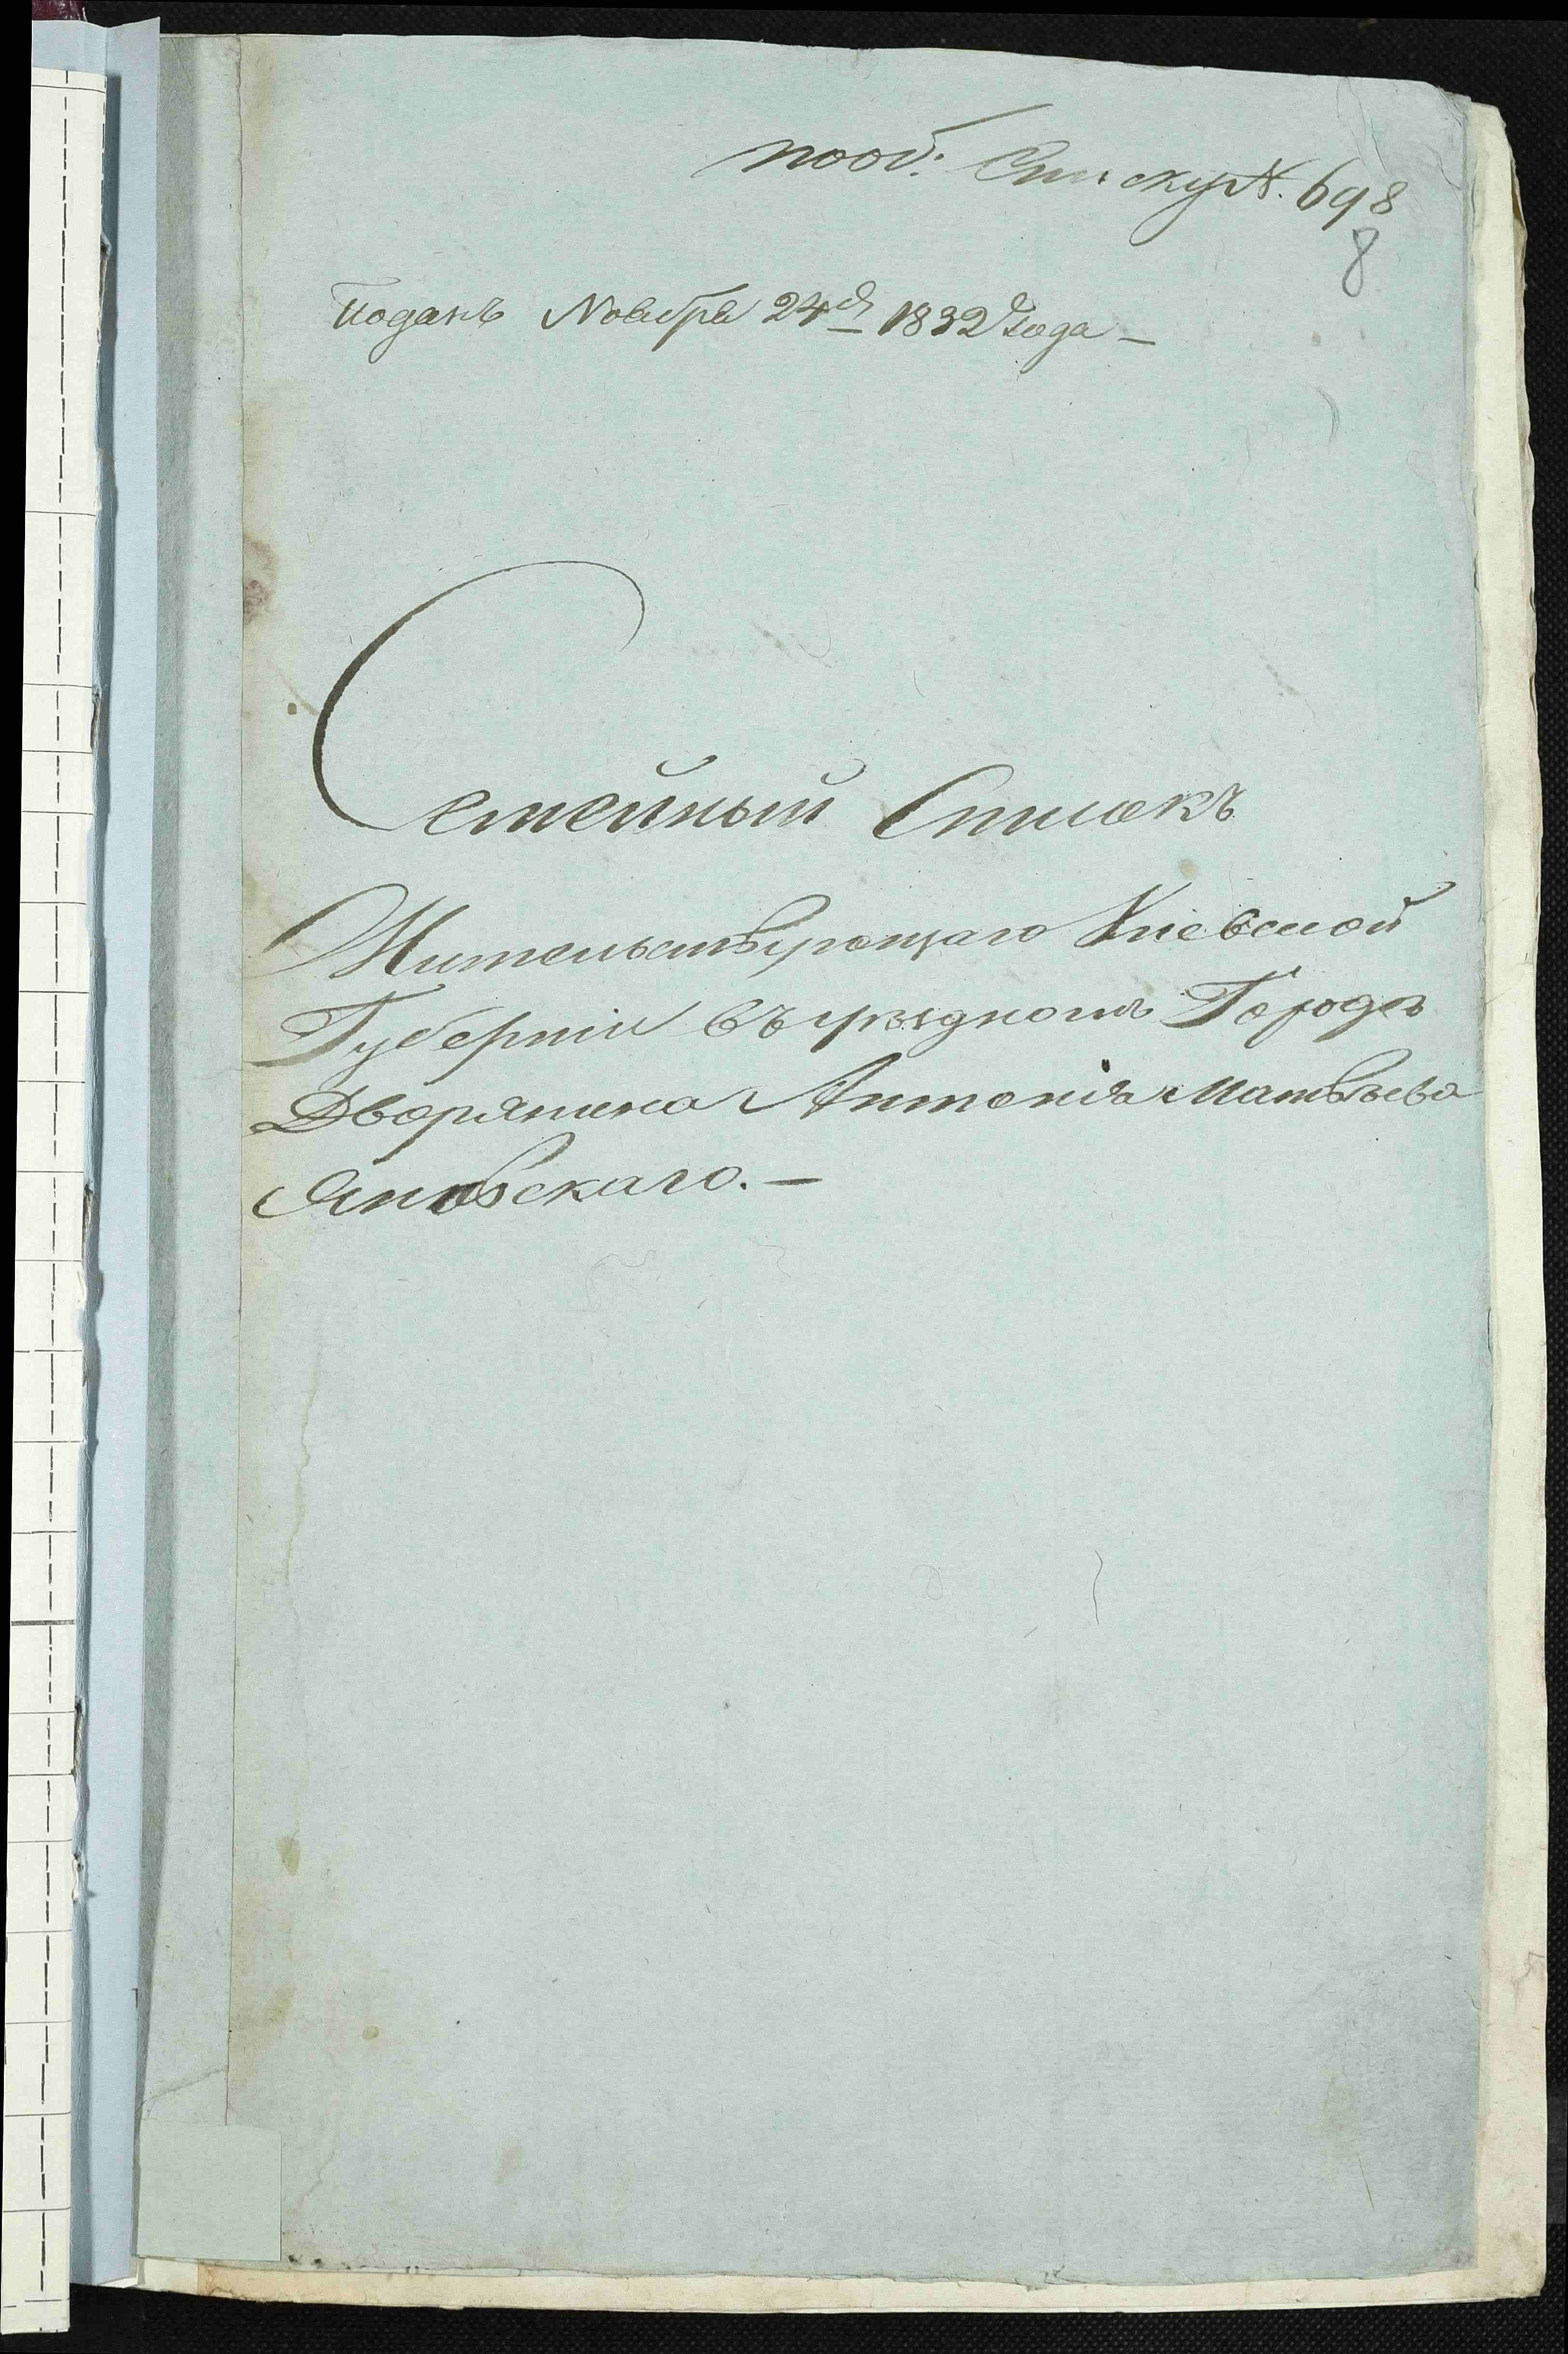 пооб: Списку №. 698
8
Поданъ Ноября 24го 1832 года —
Семейный Списокъ
Жительствующаго Кіевской
Губерніи въ уѣздномъ Городѣ
Дворянина Антонія Матвѣева
Яновскаго. —